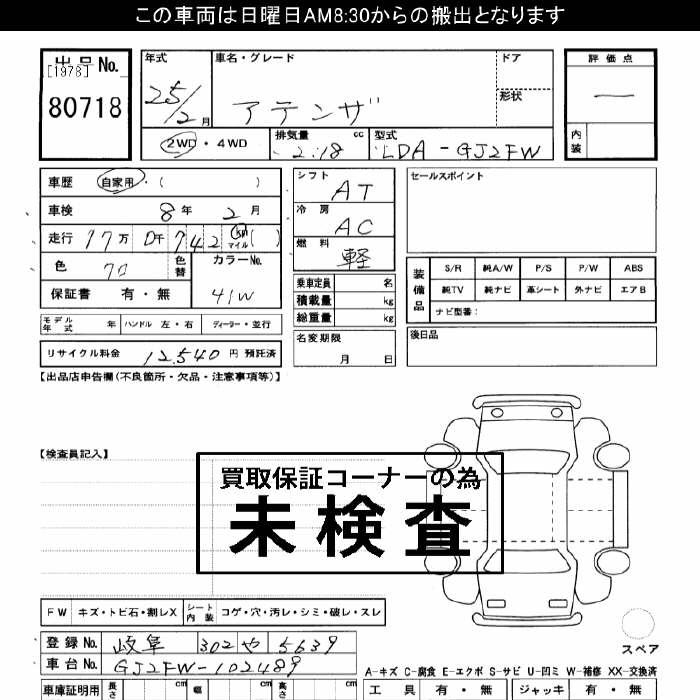 この車両は日曜日AM8:30からの搬出となります
出品No. [1978] 80718
年式 25/2月 車名・グレード アテンザ ドア 形状
2WD・4WD 排気量 2.18 cc 型式 LDA-GJ2FW
評価点 —
内装
車歴 自家用・( )
車検 8年 2月
走行 17万 0千 742 km マイル ( )
色 クロ 色替 カラーNo. 41W
保証書 有・無
モデル年式 年 ハンドル 左・右 ディーラー・並行
リサイクル料金 12,540 円 預託済
シフト AT
冷房 AC
燃料 軽
乗車定員 名
積載量 kg
総重量 kg
名変期限 月 日
セールスポイント
装備品 S/R 純A/W P/S P/W ABS
純TV 純ナビ 革シート 外ナビ エアB
ナビ型番:
後日品
【出品店申告欄(不良箇所・欠品・注意事項等)】
【検査員記入】
買取保証コーナーの為
未検査
FW キズ・トビ石・割レX シート内装 コゲ・穴・汚レ・シミ・破レ・スレ
登録No. 岐阜 302 や 5639
車台No. GJ2FW-102489
スペア
A-キズ C-腐食 E-エクボ S-サビ U-凹ミ W-補修 XX-交換済
車庫証明用 長さ cm 幅 cm 高さ cm
工具 有・無 ジャッキ 有・無